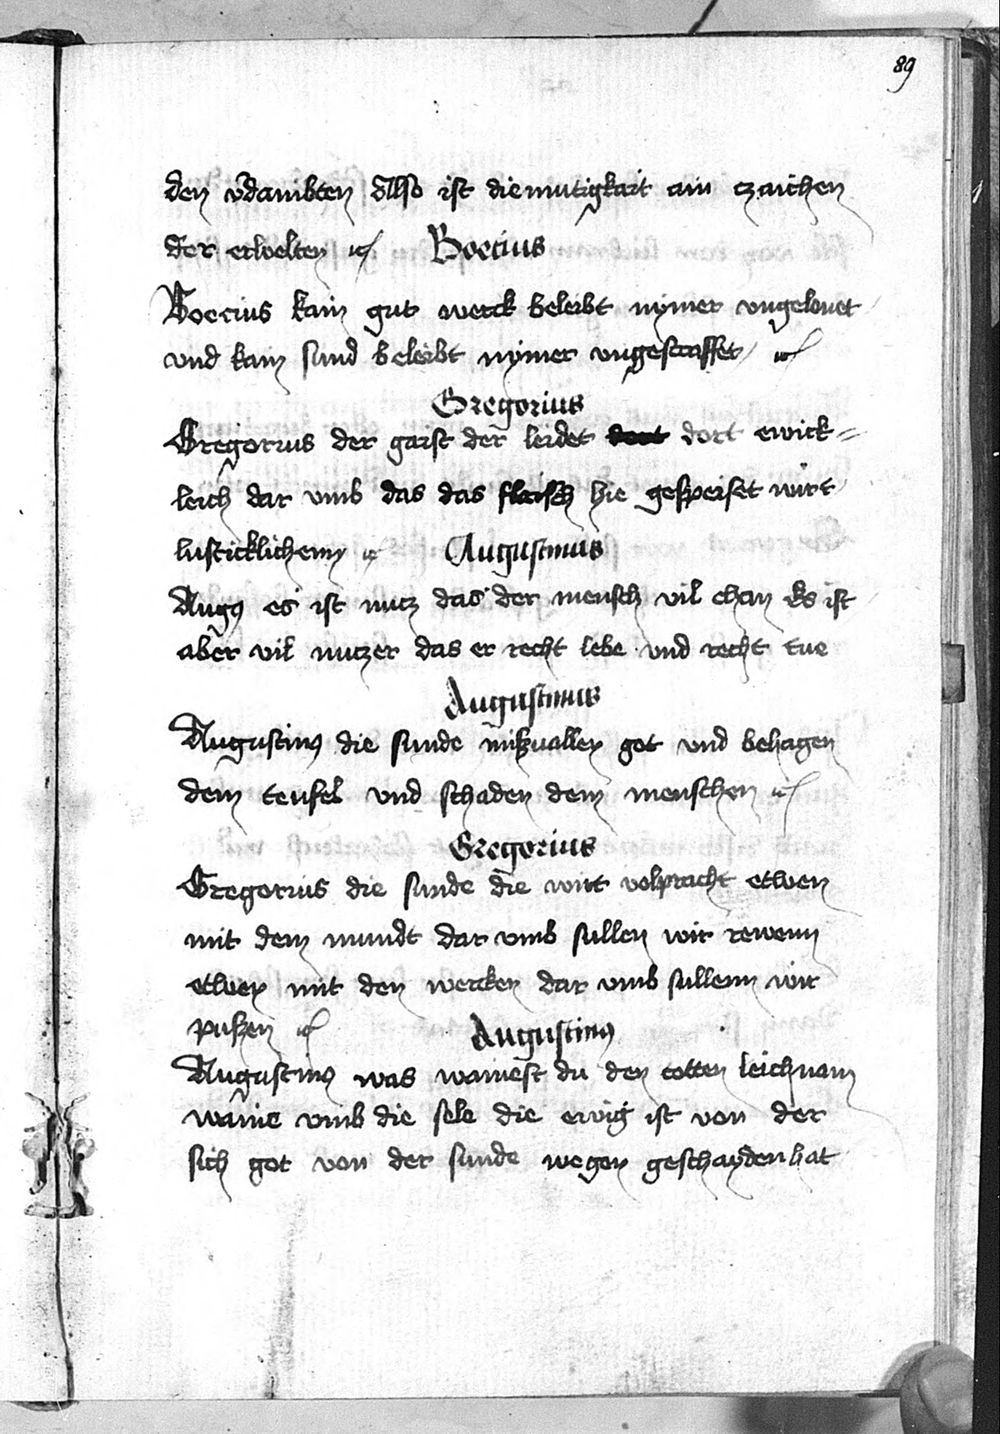 89
den v̄dambten Allso ist diemutigkait ain czaichen
der erwelten etc Boecius
Boecius kain gut werck beleibt nymer vngelonet
vnd kain sund beleibt nymer vngestraffet etc
Gregorius
Gregorius der gaist der leidet dort ewick=
leich dar vmb das das fleisch hie gespeiset wirt
lusticklichenn etc Augustinus
Augus es ist nutz das der mensch vil chan Es ist
aber vil nutzer das er recht lebe vnd recht tue
Augustinus
Augustinus die sunde miszuallen got vnd behagen
dem teufel vnd schaden dem menschen etc
Gregorius
Gregorius die sunde die wirt volpracht etwen
mit dem mundt dar vmb sullen wir rewenn
etwen mit den wercken dar vmb sullenn wir
pussen etc Augustinus
Augustinus was wainest du den totten leichnam
waine vmb die sele die ewig ist von der
sich got von der sunde wegen geschayden hat